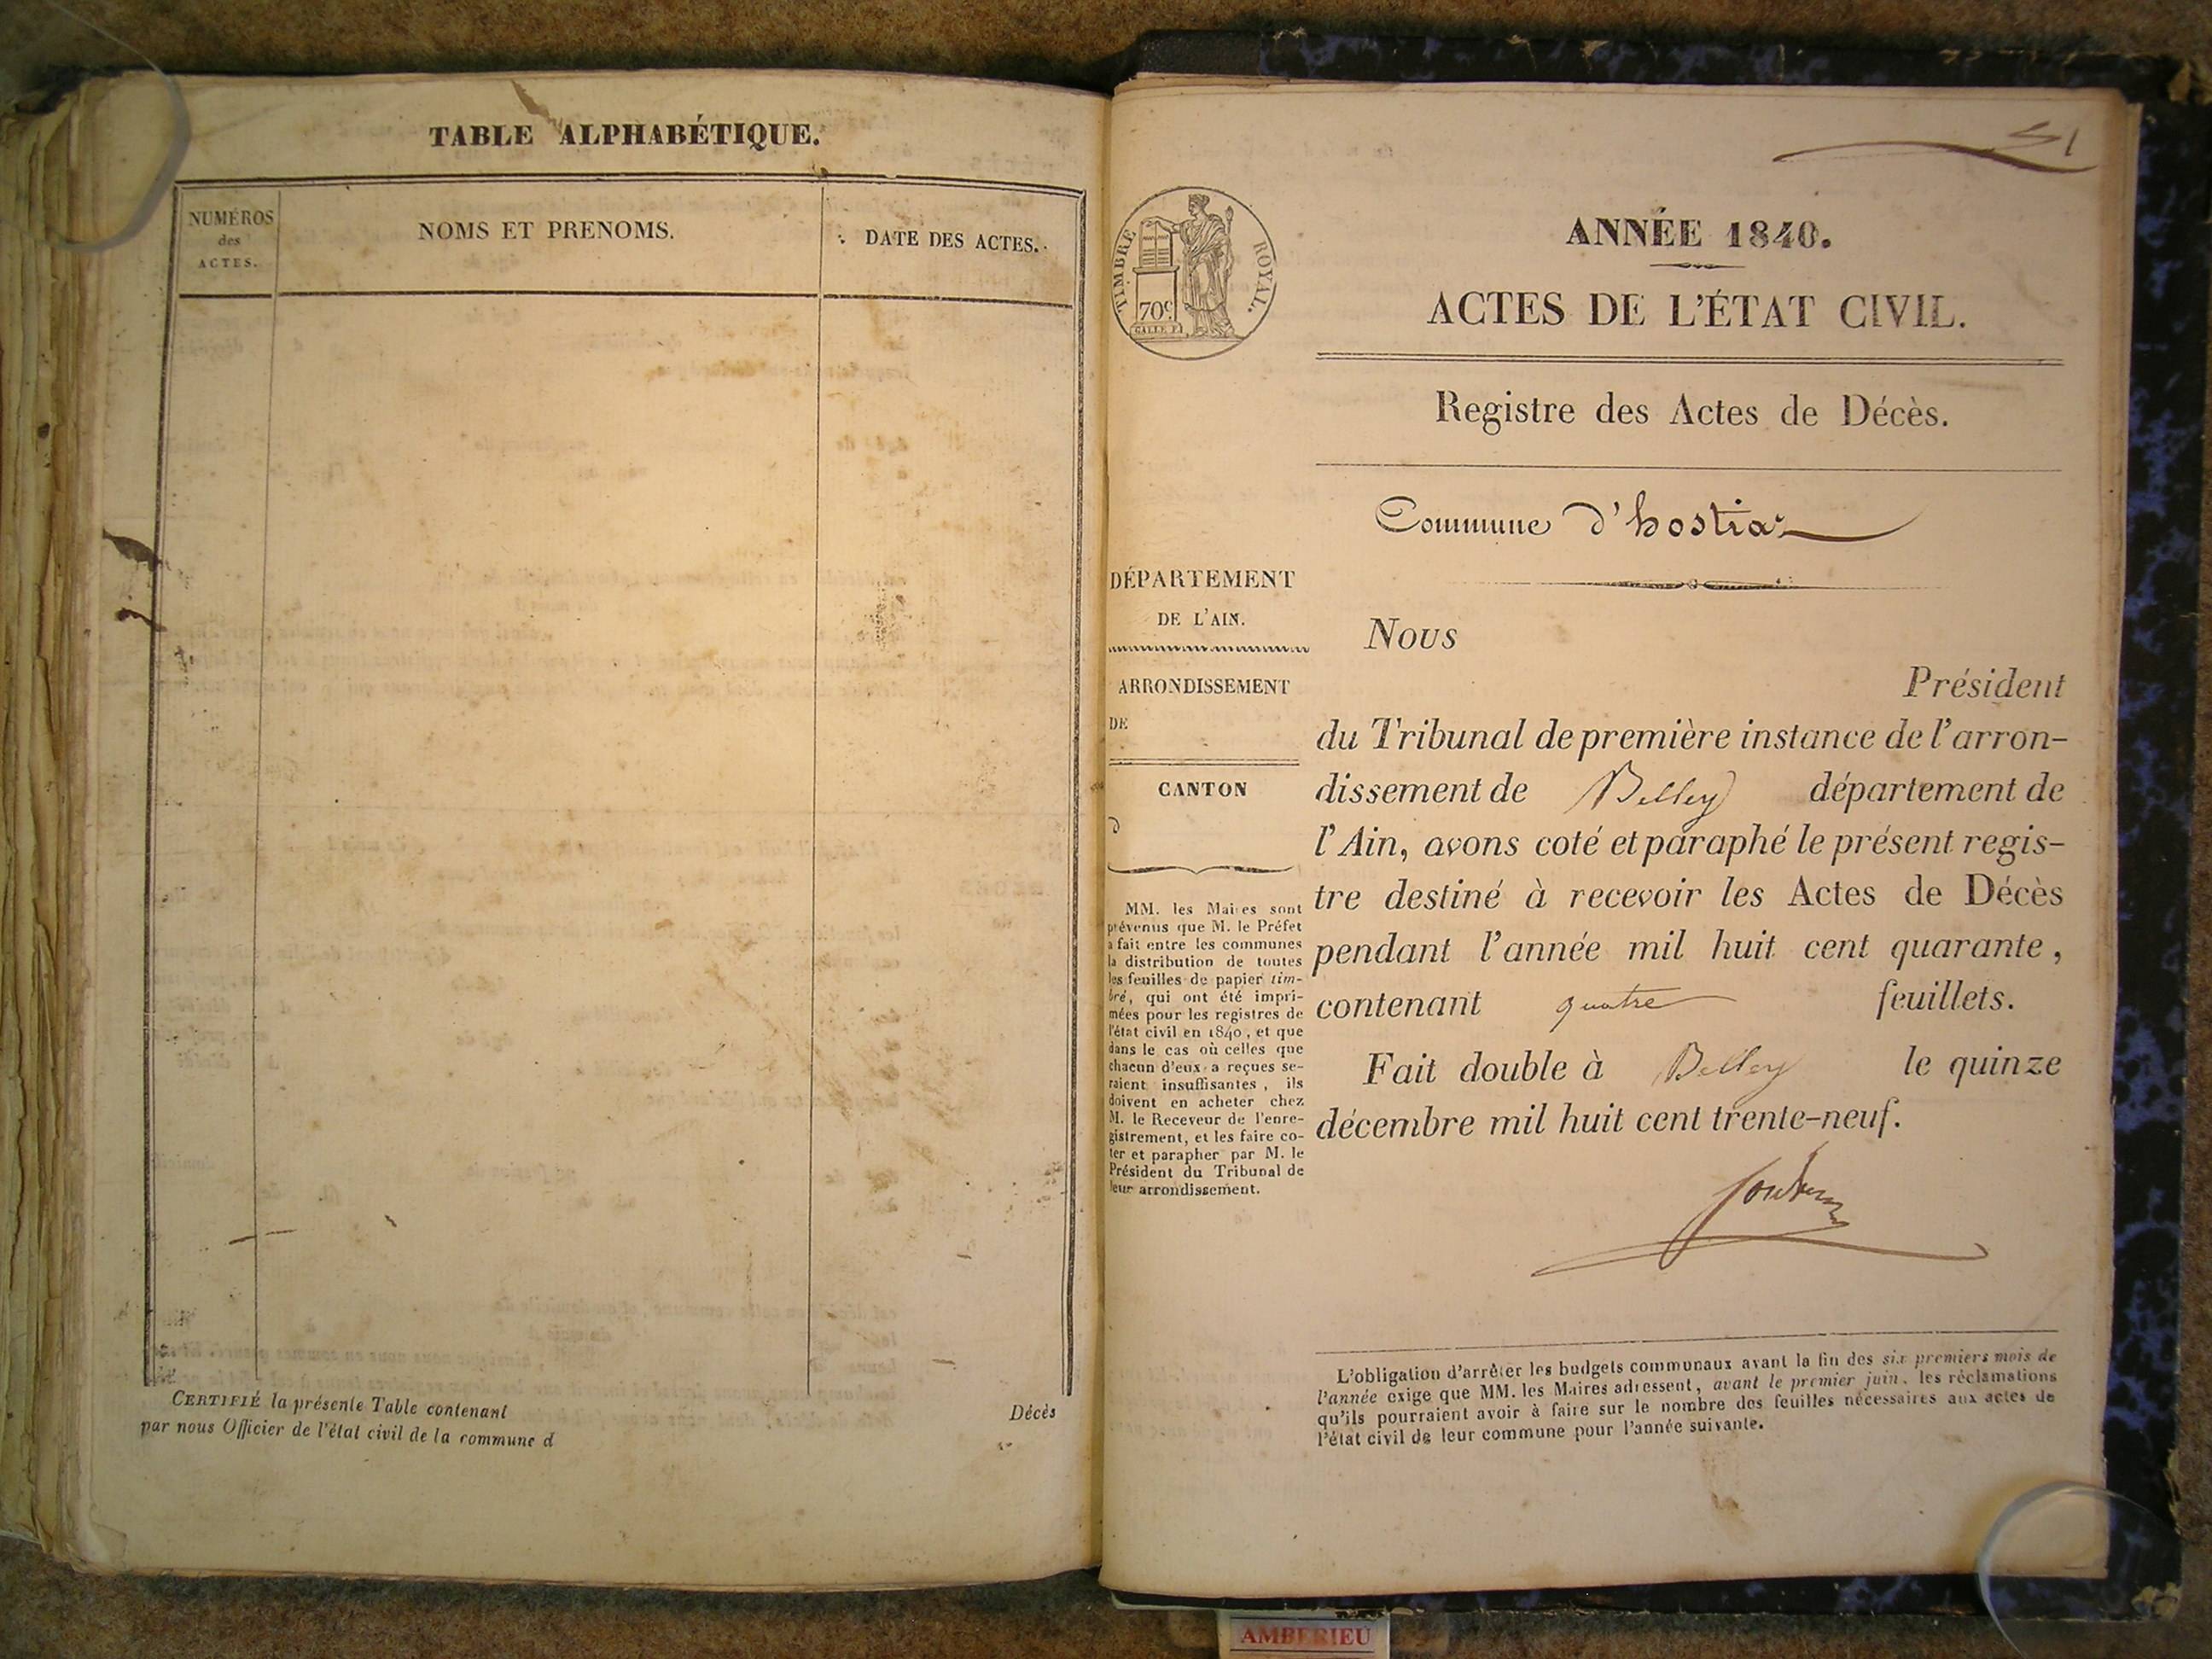 TABLE ALPHABÉTIQUE.
NUMÉROS
des
ACTES.
NOMS ET PRENOMS.
DATE DES ACTES.
CERTIFIÉ la présente Table contenant
Décès
par nous Officier de l'état civil de la commune d
51
TIMBRE ROYAL.
70c
ANNÉE 1840.
ACTES DE L'ÉTAT CIVIL.
Registre des Actes de Décès.
Commune d'hostiaz
DÉPARTEMENT
DE L'AIN.
ARRONDISSEMENT
DE
CANTON
d
MM. les Maires sont
prévenus que M. le Préfet
a fait entre les communes
la distribution de toutes
les feuilles de papier tim-
bré, qui ont été impri-
mées pour les registres de
l'état civil en 1840, et que
dans le cas où celles que
chacun d'eux a reçues se-
raient insuffisantes, ils
doivent en acheter chez
M. le Receveur de l'enre-
gistrement, et les faire co-
ter et parapher par M. le
Président du Tribunal de
leur arrondissement.
Nous
Président
du Tribunal de première instance de l'arron-
dissement de Belley département de
l'Ain, avons coté et paraphé le présent regis-
tre destiné à recevoir les Actes de Décès
pendant l'année mil huit cent quarante,
contenant quatre feuillets.
Fait double à Belley le quinze
décembre mil huit cent trente-neuf.
L'obligation d'arrêter les budgets communaux avant la fin des six premiers mois de
l'année exige que MM. les Maires adressent, avant le premier juin, les réclamations
qu'ils pourraient avoir à faire sur le nombre des feuilles nécessaires aux actes de
l'état civil de leur commune pour l'année suivante.
AMBERIEU